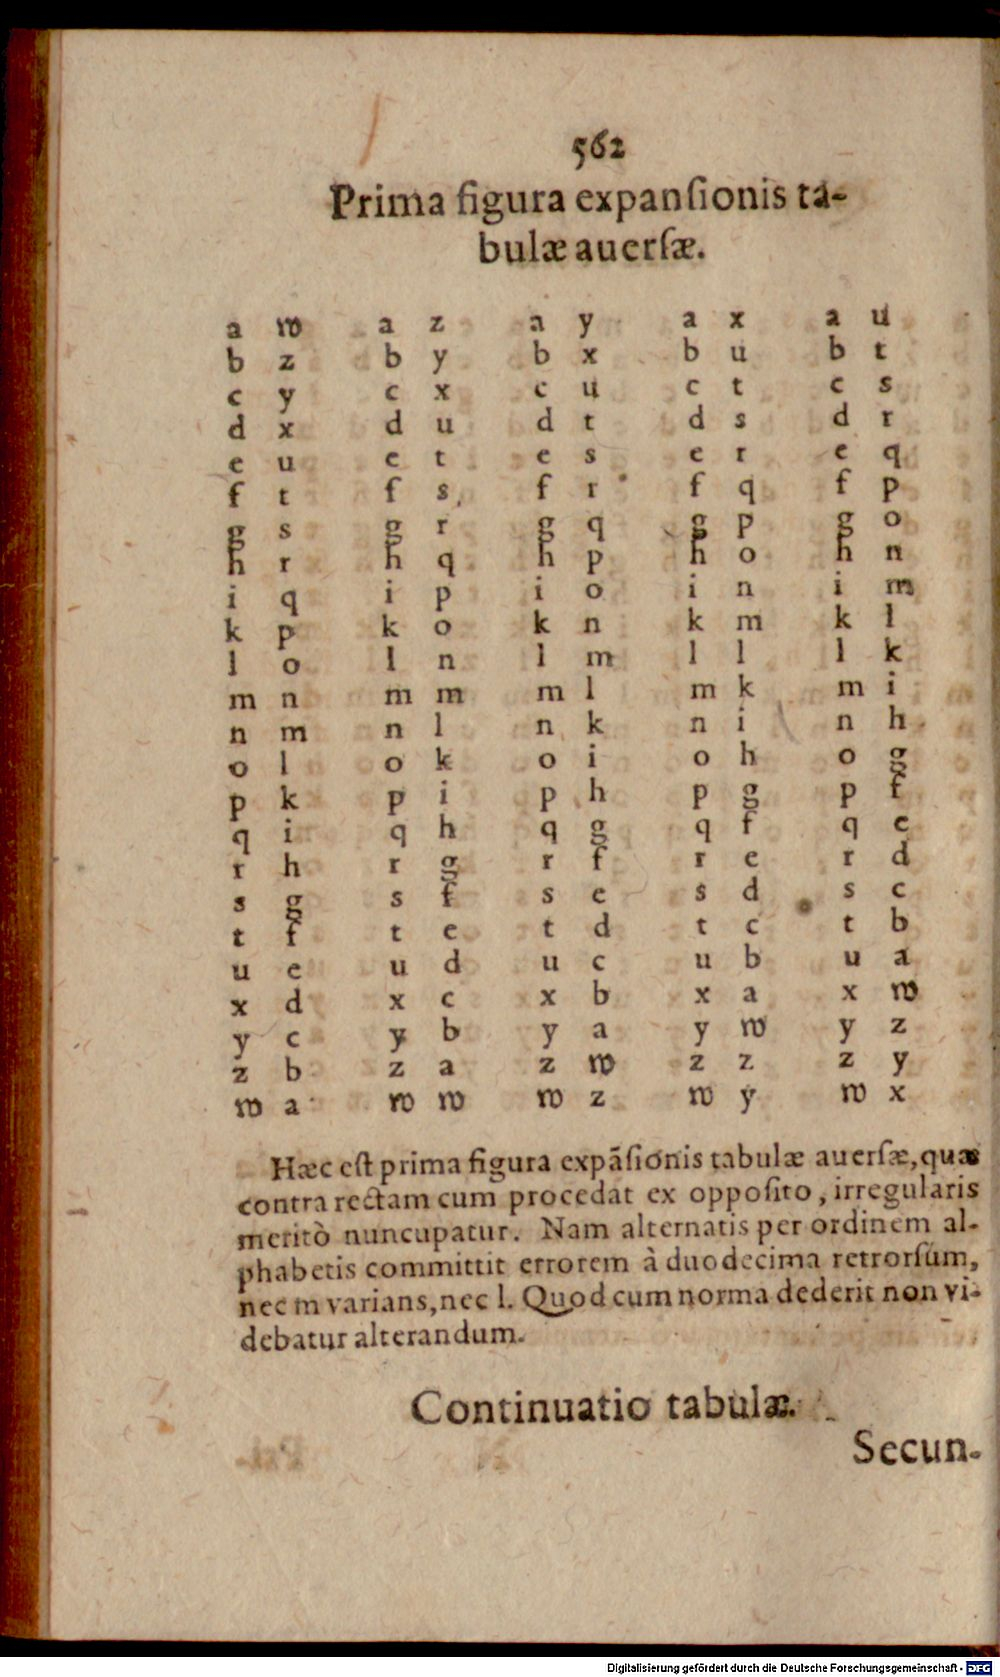 562
Prima figura expanſionis ta-
bulæ auerſæ.
a w a z a y a x a u
b z b y b x b u b t
c y c x c u c t c s
d x d u d t d s d r
e u e t e s e r e q
f t f s f r f q f p
g s g r g q g p g o
h r h q h p h o h n
i q i p i o i n i m
k p k o k n k m k l
l o l n l m l l l k
m n m m m l m k m i
n m n l n k n i n h
o l o k o i o h o g
p k p i p h p g p f
q i q h q g q f q e
r h r g r f r e r d
s g s f s e s d s c
t f t e t d t c t b
u e u d u c u b u a
x d x c x b x a x w
y c y b y a y w y z
z b z a z w z z z y
w a w w w z w y w x
Hæc eſt prima figura expãſionis tabulæ auerſæ, quæ
contra rectam cum procedat ex oppoſito, irregularis
meritò nuncupatur. Nam alternatis per ordinem al-
phabetis committit errorem à duodecima retrorſúm,
nec m varians, nec l. Quod cum norma dederit non vi-
debatur alterandum.
Continuatio tabulæ.
Secun-
Digitalisierung gefördert durch die Deutsche Forschungsgemeinschaft - DFG